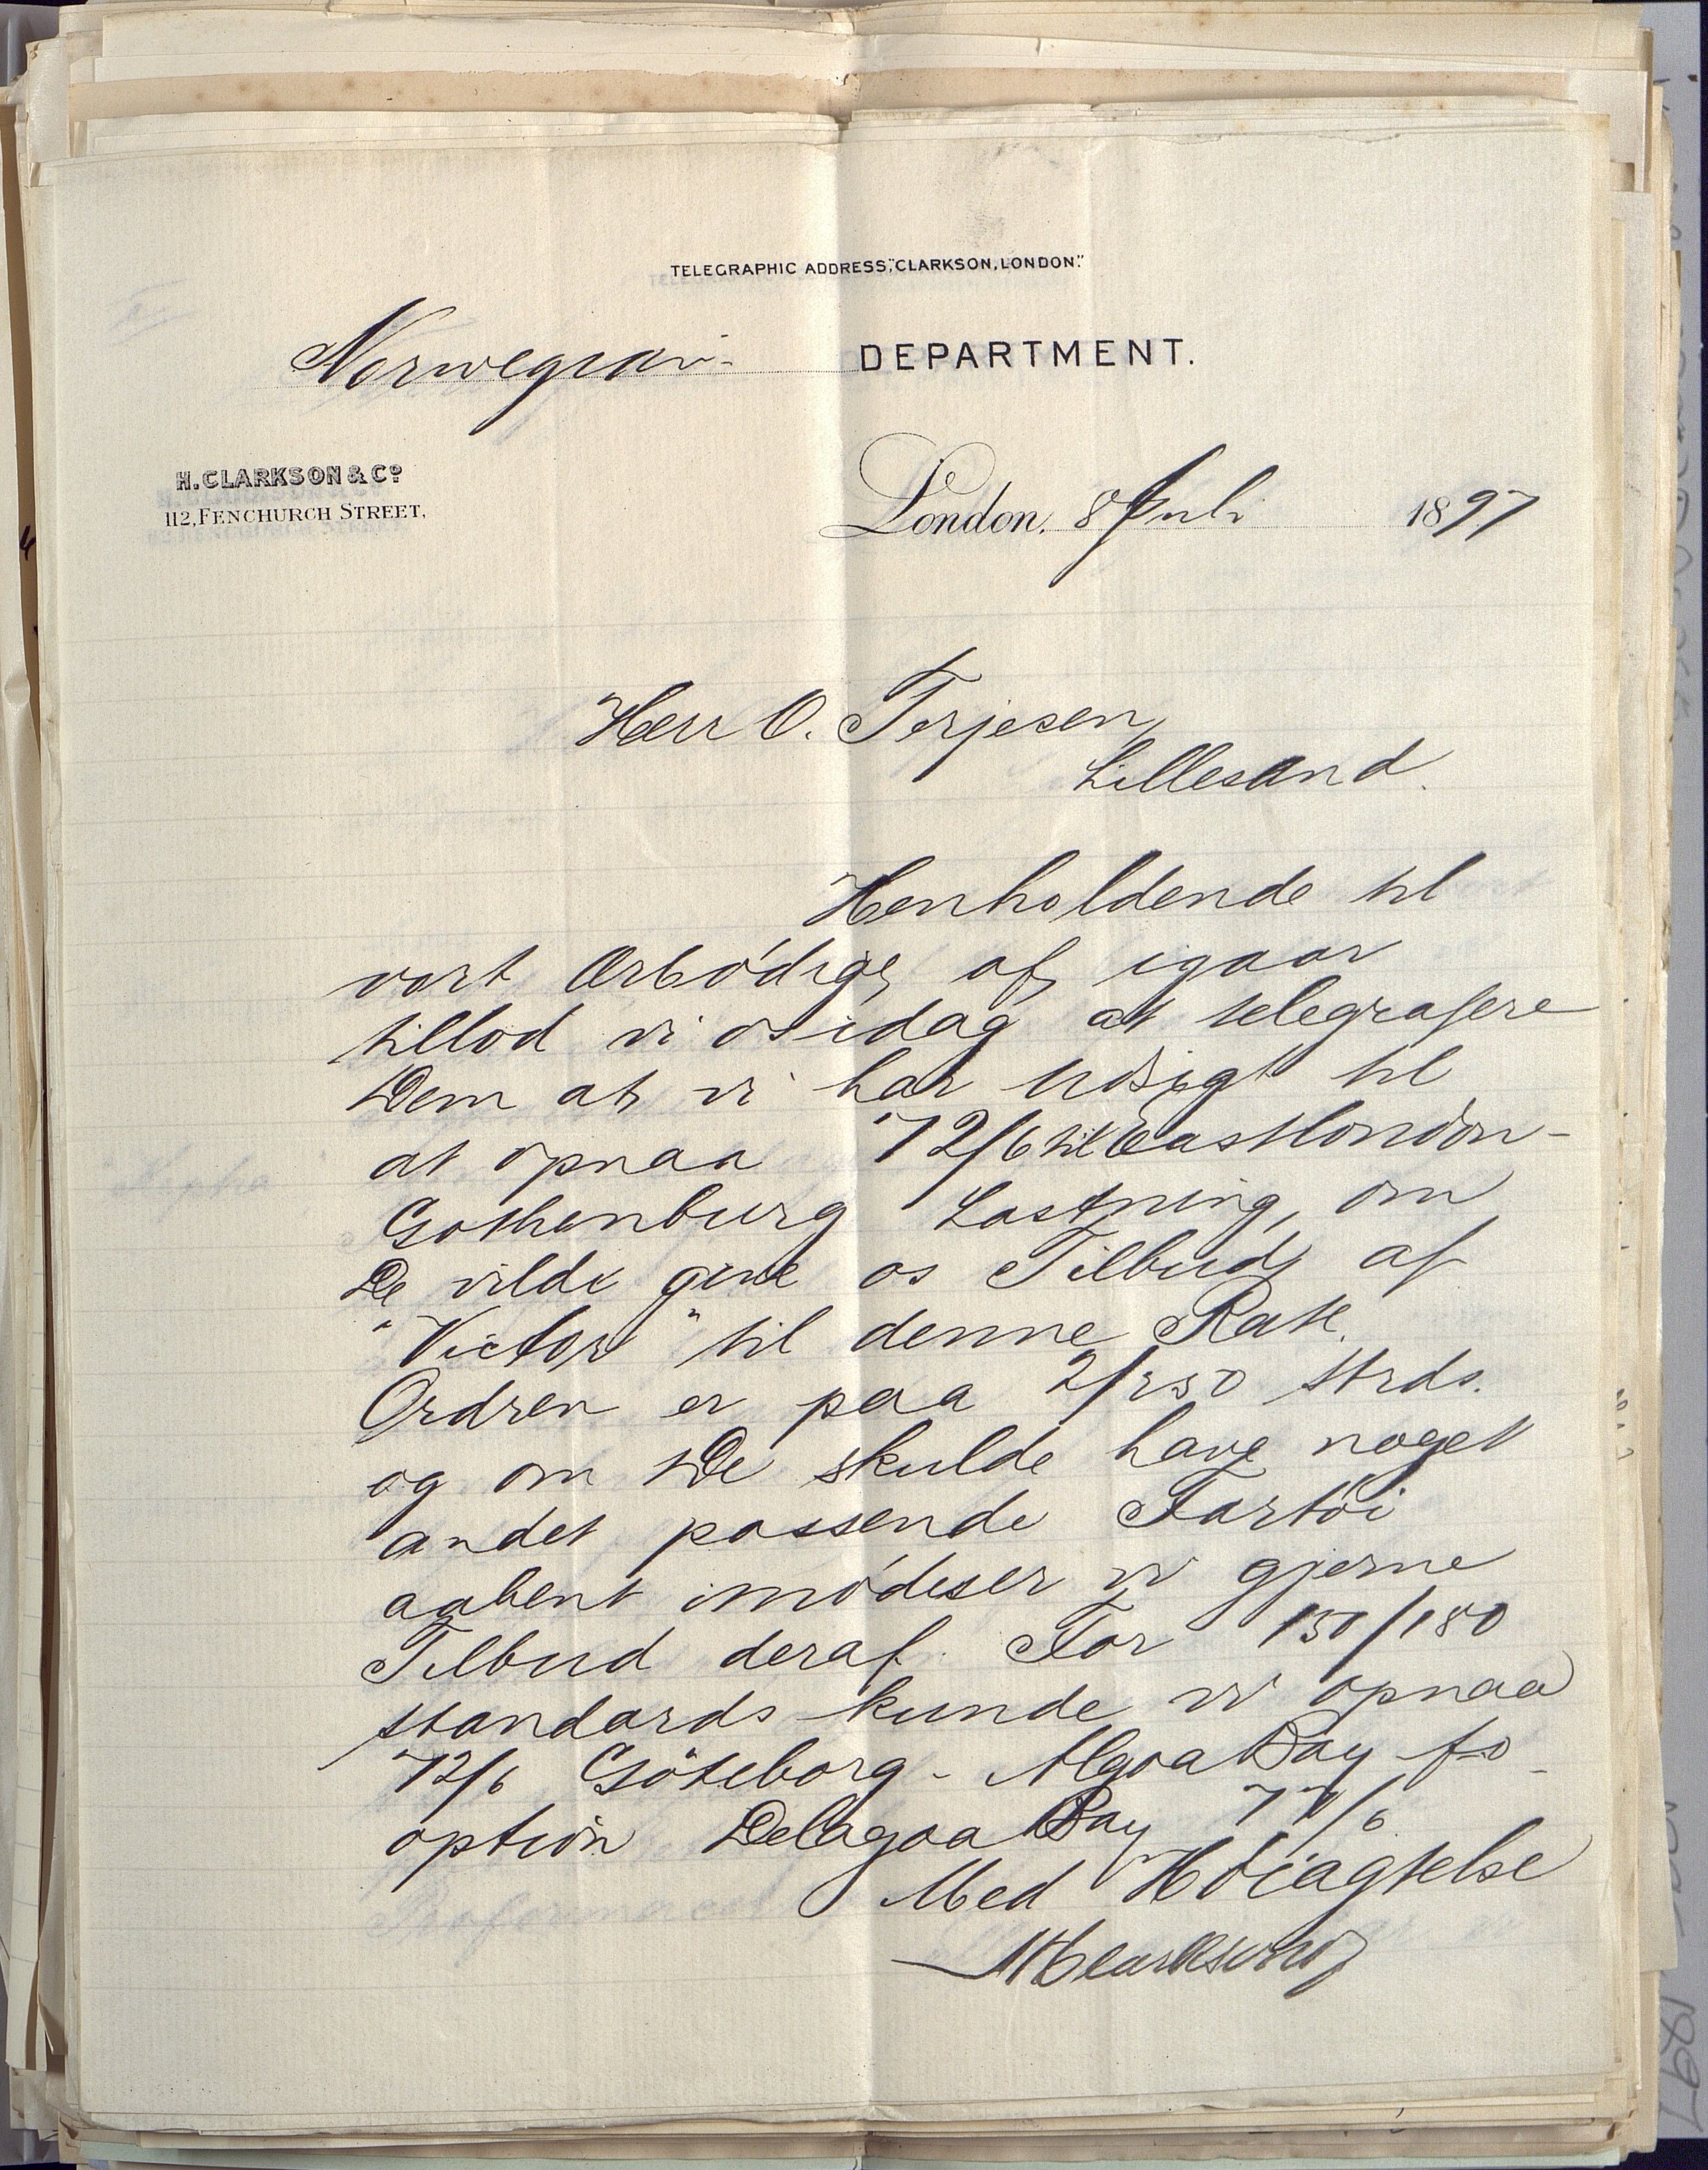 TELEGRAPHIC ADDRESS, "CLARKSON, LONDON."
Norwegian DEPARTMENT.
H. CLARKSON & Co
112, FENCHURCH STREET,
London, 8 Juli 1897
Herr O. Terjesen,
Lillesand.
Henholdende til
vort Ærbødige af igaar
tillod vi os idag at telegrafere
Dem at vi har Udsigt til
at opnaa 72/6 til Eastlondon-
Gothenburg Lastning, om
De vilde give os Tilbud af
"Victor" til denne Rate.
Ordren er paa 2/250 Strds.
og om De skulde have noget
andet passende Fartöi
aabent imødeser vi gjerne
Tilbud deraf. For 150/180
standards kunde vi opnaa
72/6 Göteborg - Algoa Bay
option Delagoa Bay 77/6
Med Høiagtelse